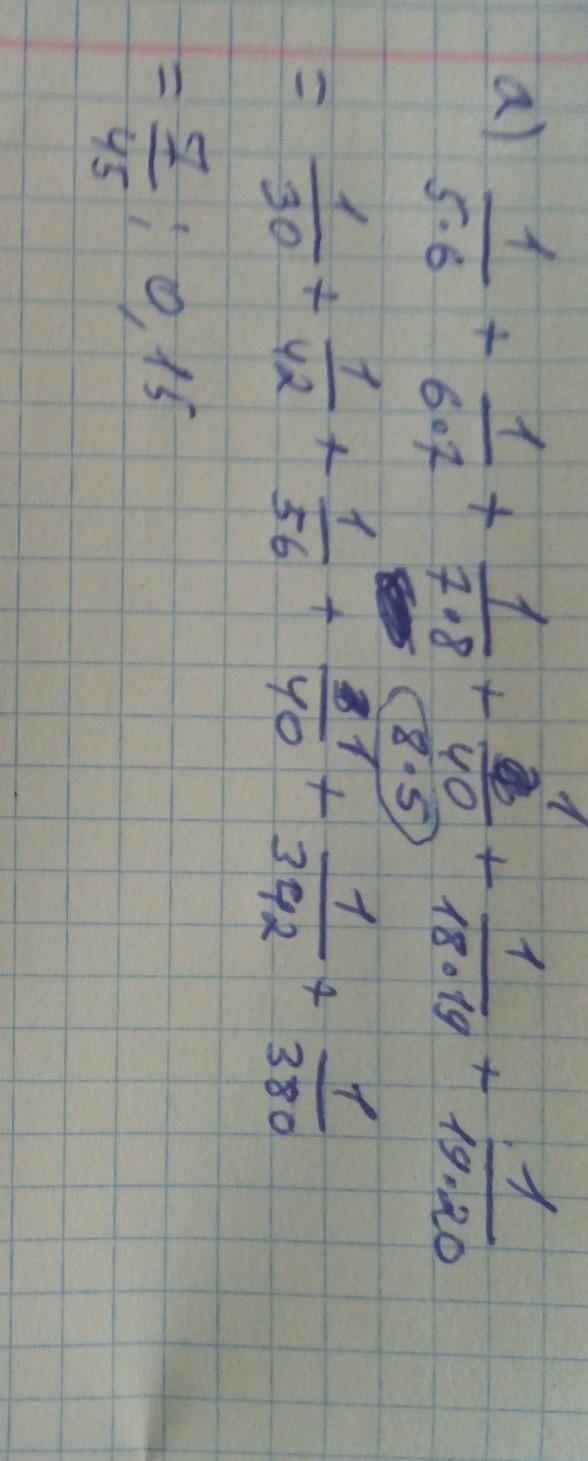 a) 1/5·6 + 1/6·7 + 1/7·8 + 1/40 + 1/18·19 + 1/19·20
(8·5)
= 1/30 + 1/42 + 1/56 + 1/40 + 1/342 + 1/380
= 7/45 ; 0,15